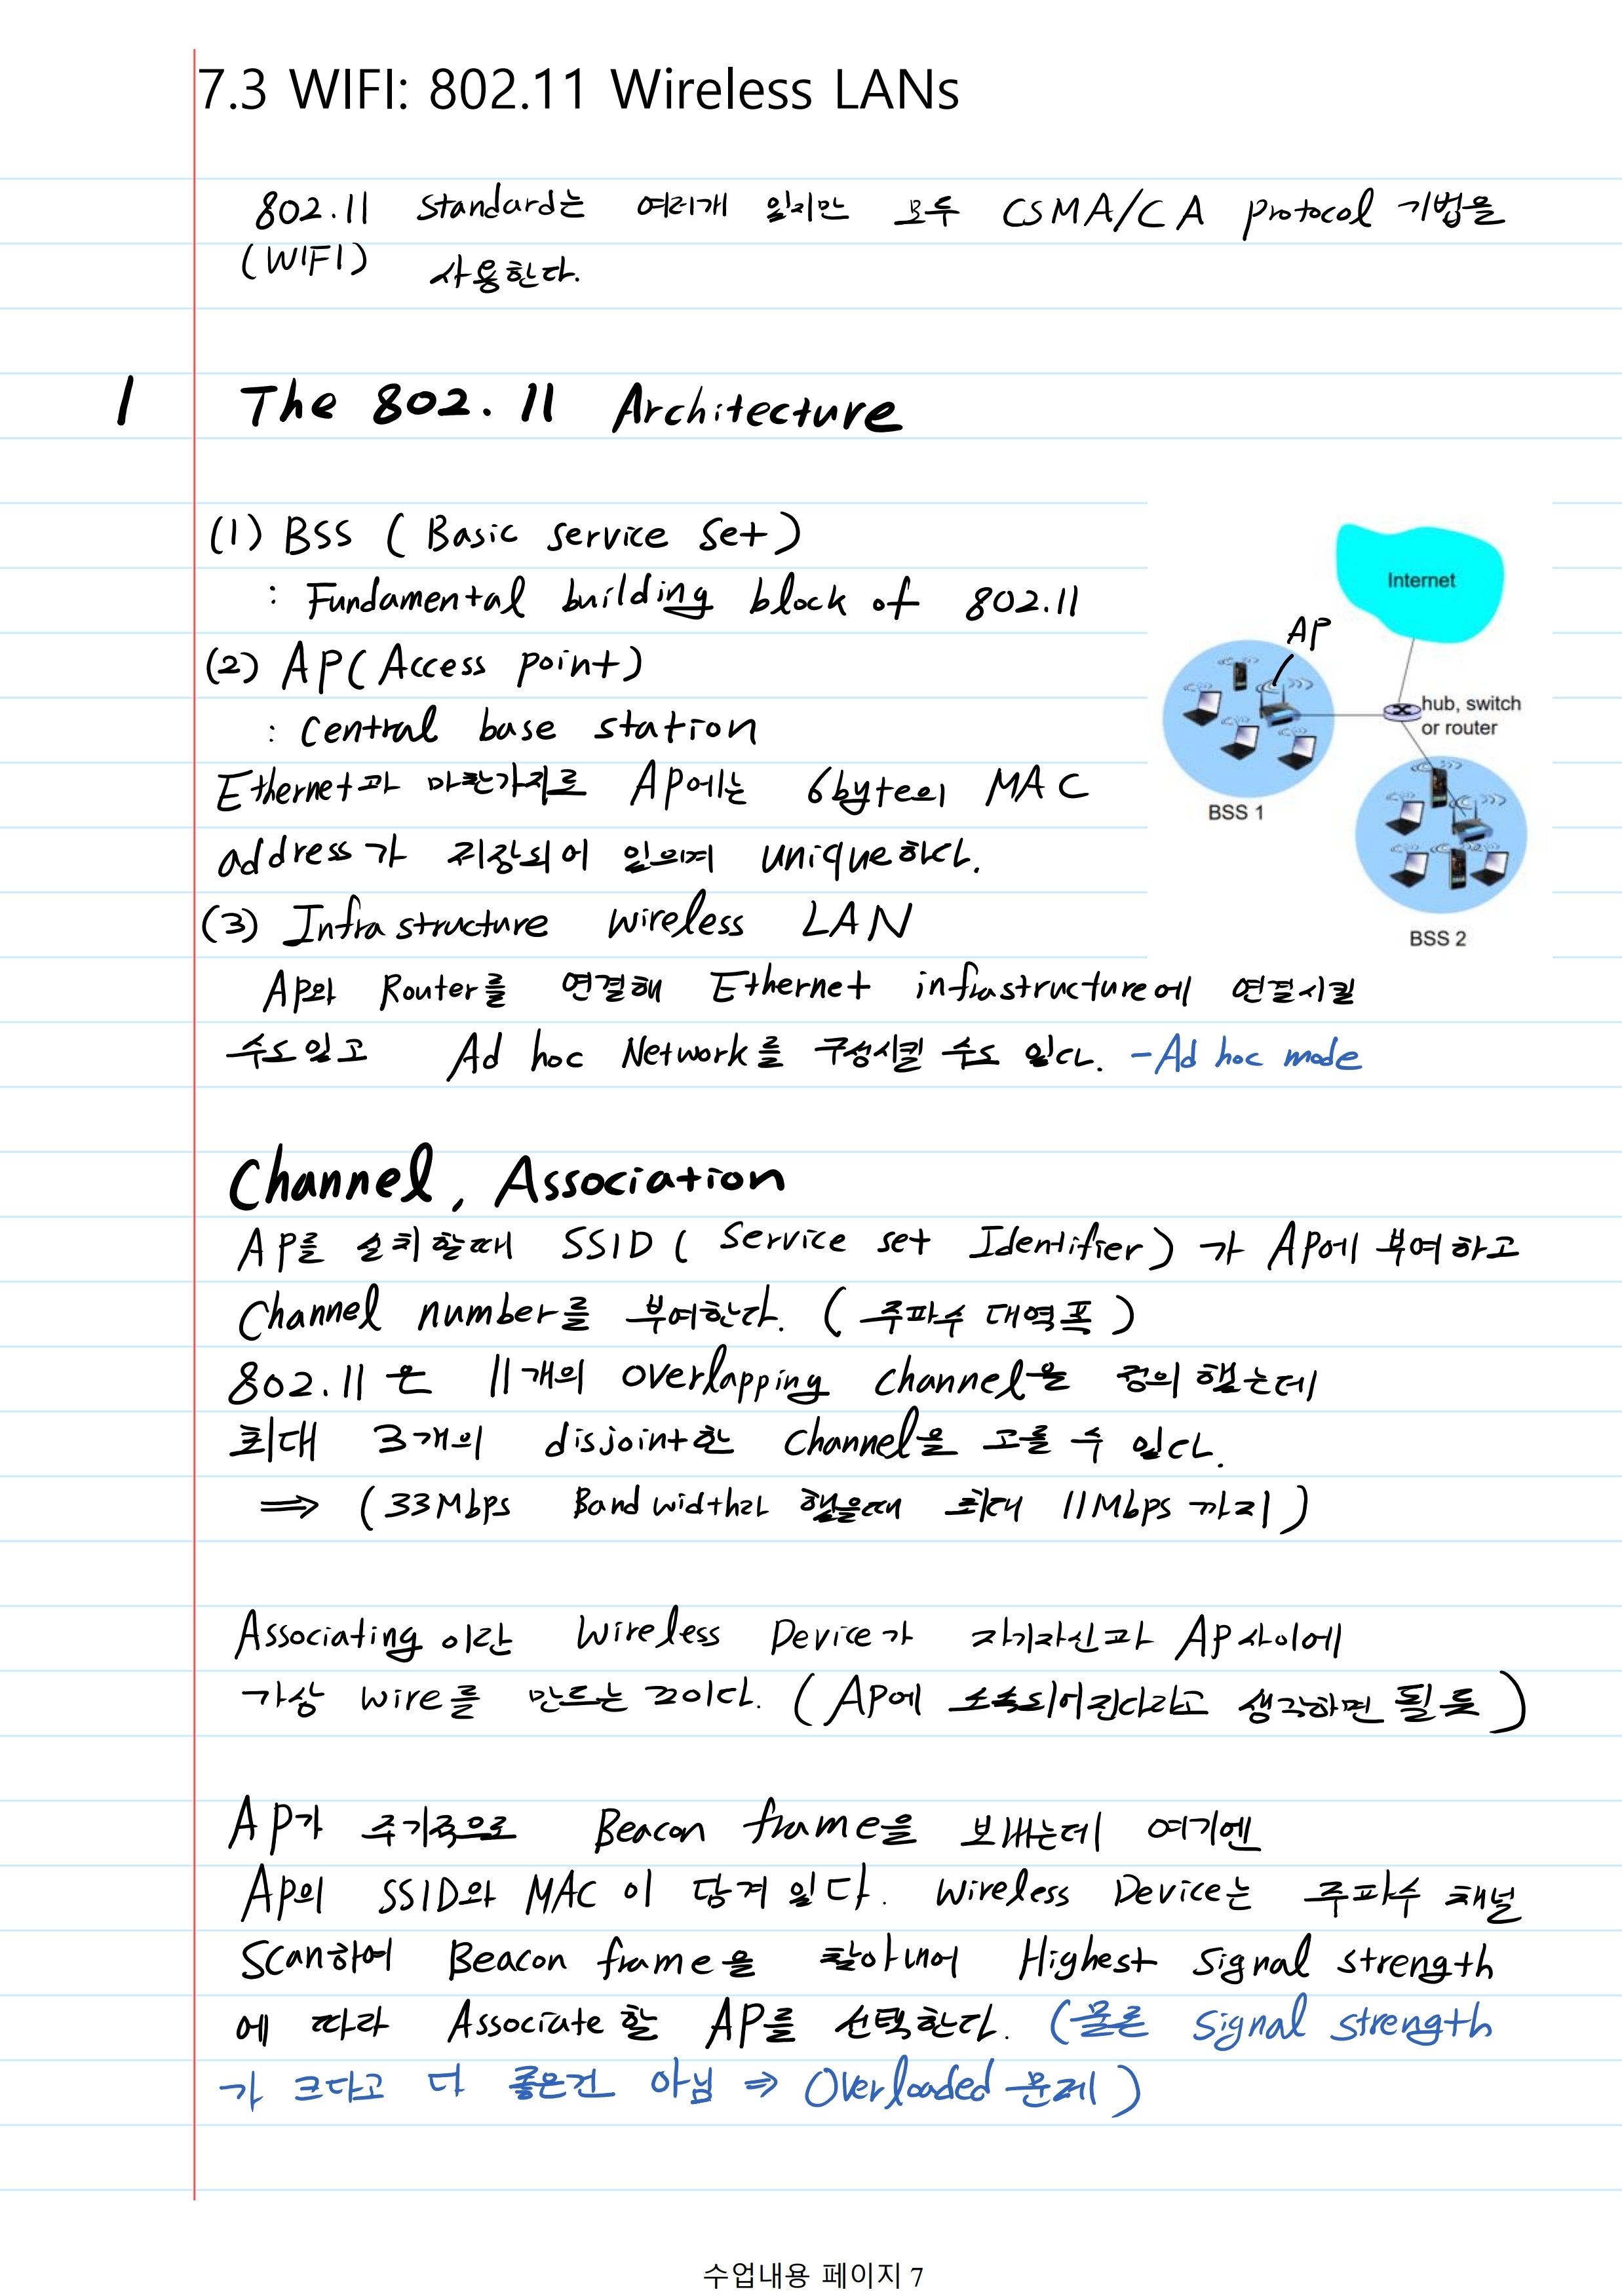 7.3 WIFI: 802.11 Wireless LANs
802.11 standard는 여러개 있지만 모두 CSMA/CA protocol 기법을
(WIFI) 사용한다.
1 The 802.11 Architecture
(1) BSS ( Basic service set )
: Fundamental building block of 802.11
(2) AP( Access point )
: Central base station
Ethernet과 마찬가지로 AP에는 6byte의 MAC
address가 저장되어 있으며 unique하다.
(3) Infrastructure wireless LAN
AP와 Router를 연결해 Ethernet infrastructure에 연결시킬
수도 있고 Ad hoc Network를 구성시킬 수도 있다. -Ad hoc mode
Internet
AP
hub, switch
or router
BSS 1
BSS 2
Channel, Association
AP를 설치할때 SSID ( Service set Identifier ) 가 AP에 부여하고
Channel number를 부여한다. ( 주파수 대역폭 )
802.11 은 11개의 overlapping channel을 정의 했는데
최대 3개의 disjoint한 channel을 고를 수 있다.
⇒ (33Mbps Bandwidth라 했을때 최대 11Mbps 까지 )
Associating 이란 Wireless Device가 자기자신과 AP사이에
가상 wire를 만드는 것이다. ( AP에 소속되어진다라고 생각하면 될듯 )
AP가 주기적으로 Beacon frame을 보내는데 여기엔
AP의 SSID와 MAC 이 담겨 있다. Wireless Device는 주파수 채널
Scan하여 Beacon frame을 찾아내어 Highest signal strength
에 따라 Associate 할 AP를 선택한다. (물론 signal strength
가 크다고 다 좋은건 아님 ⇒ Overloaded 문제 )
수업내용 페이지 7